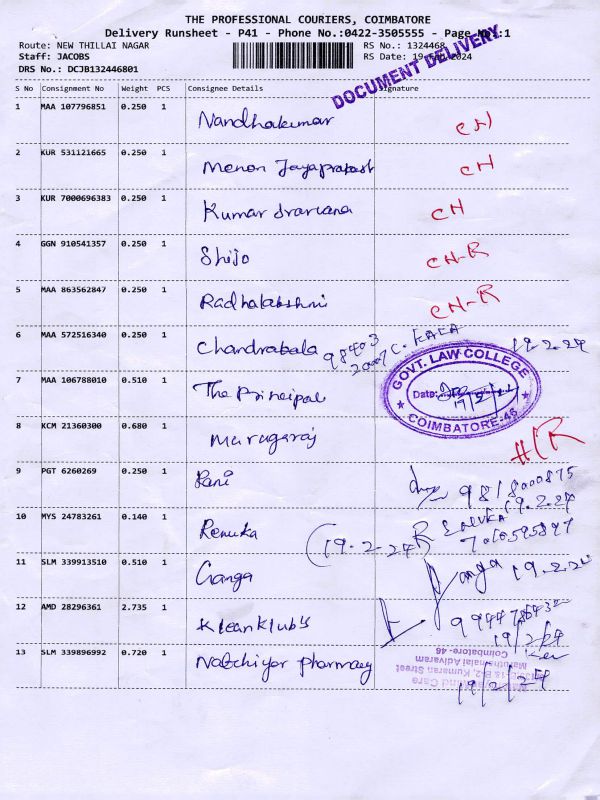 THE PROFESSIONAL COURIERS, COIMBATORE
Delivery Runsheet - P41 - Phone No.:0422-3505555 - Page No.:1
Route: NEW THILLAI NAGAR RS No.: 1324468
Staff: JACOBS RS Date: 19-Feb-2024
DRS No.: DCJB132446801
DOCUMENT DELIVERY
S No Consignment No Weight PCS Consignee Details Signature
1 MAA 107796851 0.250 1 Nandhakumar CH
2 KUR 531121665 0.250 1 Menon Jayaprakash CH
3 KUR 7000696383 0.250 1 Kumar CH
4 GGN 910541357 0.250 1 Shijo CH-R
5 MAA 863562847 0.250 1 Radhalakshmi CH-R
6 MAA 572516340 0.250 1 Chandrabala 98403 C. KALA 19.2.24
7 MAA 106788010 0.510 1 The Principal
GOVT. LAW COLLEGE
Date: 19/2/24
COIMBATORE-46
8 KCM 21360300 0.680 1 Murugaraj
9 PGT 6260269 0.250 1 Rani 9818000875
19.2.24
10 MYS 24783261 0.140 1 Renuka (19.2.24) RENUKA
11 SLM 339913510 0.510 1 Ganga Ganga 19.2.24
12 AMD 28296361 2.735 1 Klean Klub's
19/2/24
13 SLM 339896992 0.720 1 Natchiyar pharmacy
19/2/24
Kumaran Street
Maruthamalai Adivaram
Coimbatore- 46